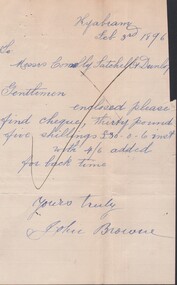 Kyabram
Feb 3rd 1896
To
Messrs Connolly Tatchell & Dunlop
Gentlemen
enclosed please
find cheque, thirty pound
five shillings £30-0-6 
with 4/6 added
for back time
Yours truly
John Browne